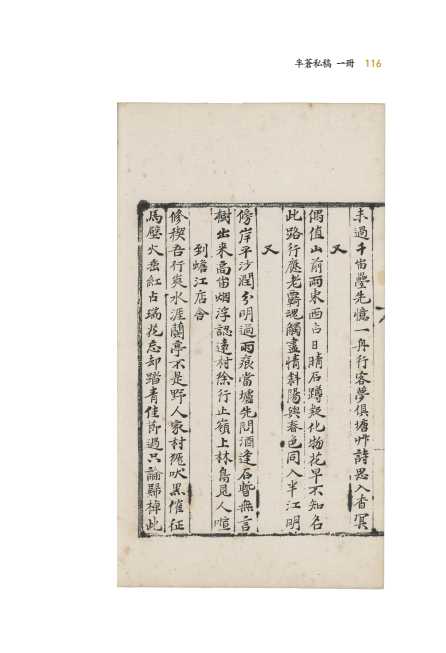 半蒼私稿 一冊 116
未過千峀疊先憶一舟行客夢俱塘艸詩思入杳冥
又
偶值山前雨東西占日晴石蹲疑化物花早不知名
此路行應老羈魂觸盡情斜陽與春色同入半江明
又
傍岸平沙濶分明過雨痕當壚先問酒逢石暫無言
樹出来高峀烟浮認遠村徐行止嶺上林鳥見人喧
到蟾江店舍
修稧吾行與水涯蘭亭不是野人家村厖吠黑催征
馬壁火垂紅占瑞花忘却踏青佳節過只論歸棹此